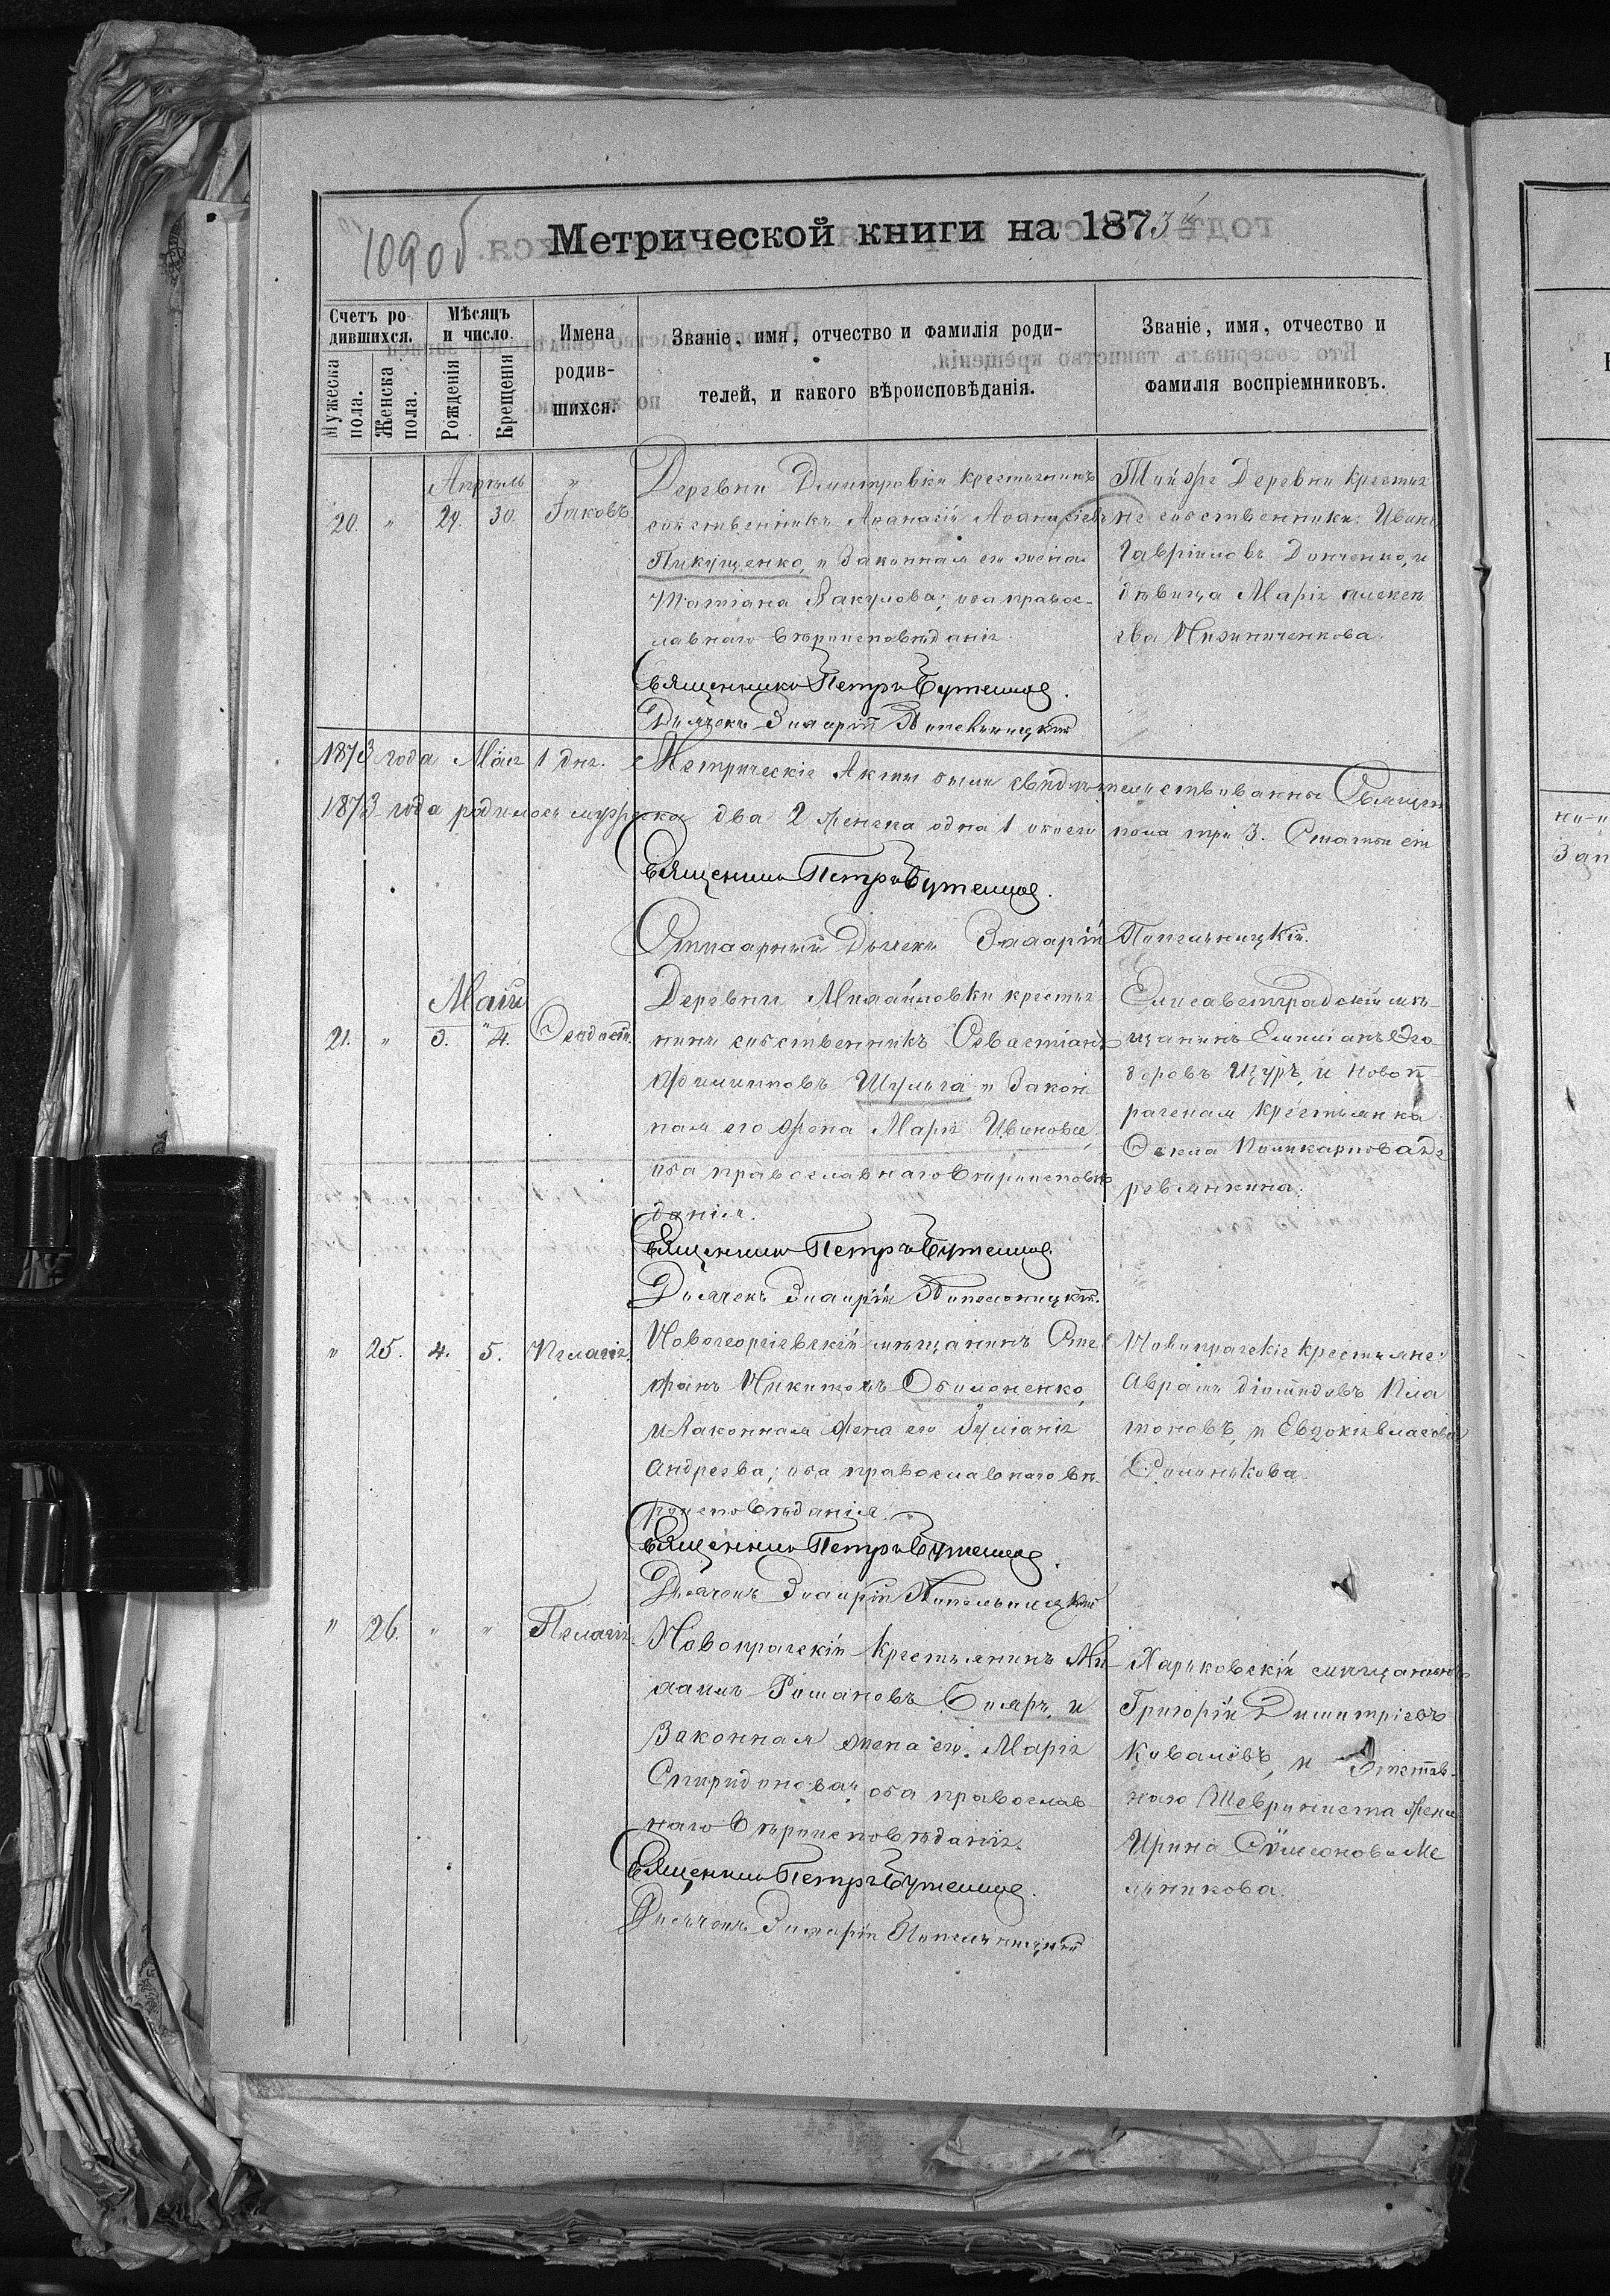 1090 об
Метрической книги на 1873й
Счетъ ро-
дившихся.
Мужеска пола.
Женска пола.
Мѣсяцъ
и число.
Рожденія
Крещенія
Имена
родив-
шихся.
Званіе, имя, отчество и фамилія роди-
телей, и какого вѣроисповѣданія.
Званіе, имя, отчество и
фамилія воспріемниковъ.
Апрѣль
20. " 29. 30. Іаковъ
Деревни Димитровки крестьянинъ
собственникъ Аѳанасій Аѳанасіевъ
и законная его жена
Татіана Вакулова; оба правос-
лавнаго вѣроисповѣданія.
Священникъ Петръ
Дьячекъ
Той же Деревни крестья
не собственники: Иванъ
Гавріиловъ Донченко, и
дѣвица Марія Алексѣ
ева
1873 года Маія 1 дня. Метрическіе Акты были свидѣтельствованны Священ
1873 года родилось мужеска два 2 женска одна 1 обоего пола три 3. Статьи сіи
Священникъ Петръ
Дьячекъ
Май
21. " 3. 4. Ѳеодосій.
Деревни Михайловки крестья
нинъ собственникъ Севастіанъ
Филипповъ Шульга и закон
ная его жена Марія Иванова,
оба православнаго вѣроисповѣ
данія.
Священникъ Петръ
Дьячекъ
Елисаветградскій мѣ-
щанинъ Емиліанъ Ѳео
доровъ Щуръ, и новоп
рагская крестьянка
Ѳекла Поликарпова Де
ревянкина.
" 25. 4. 5. Пелагія.
Новогеоргіевскій мѣщанинъ Сте
фанъ Никитовъ
и законная жена его Іуліанія
Андреева; оба православнаго вѣ-
роисповѣданія.
Священникъ Петръ
Дьячекъ
Новопрагскіе крестьяне:
Аврамъ Діомидовъ Пла
тоновъ, и Евдокія Власова
" 26. " " Пелагія.
Новопрагскій крестьянинъ Ми
хаилъ Романовъ и
Законная жена его Марія
Спиридонова; оба православ
наго вѣроисповѣданія.
Священникъ Петръ
Дьячекъ
Харьковскій мѣщанинъ
Григорій Димитріевъ
Ковалевъ, и
наго жена
Ирина Сѵмеонова Ме
льникова.